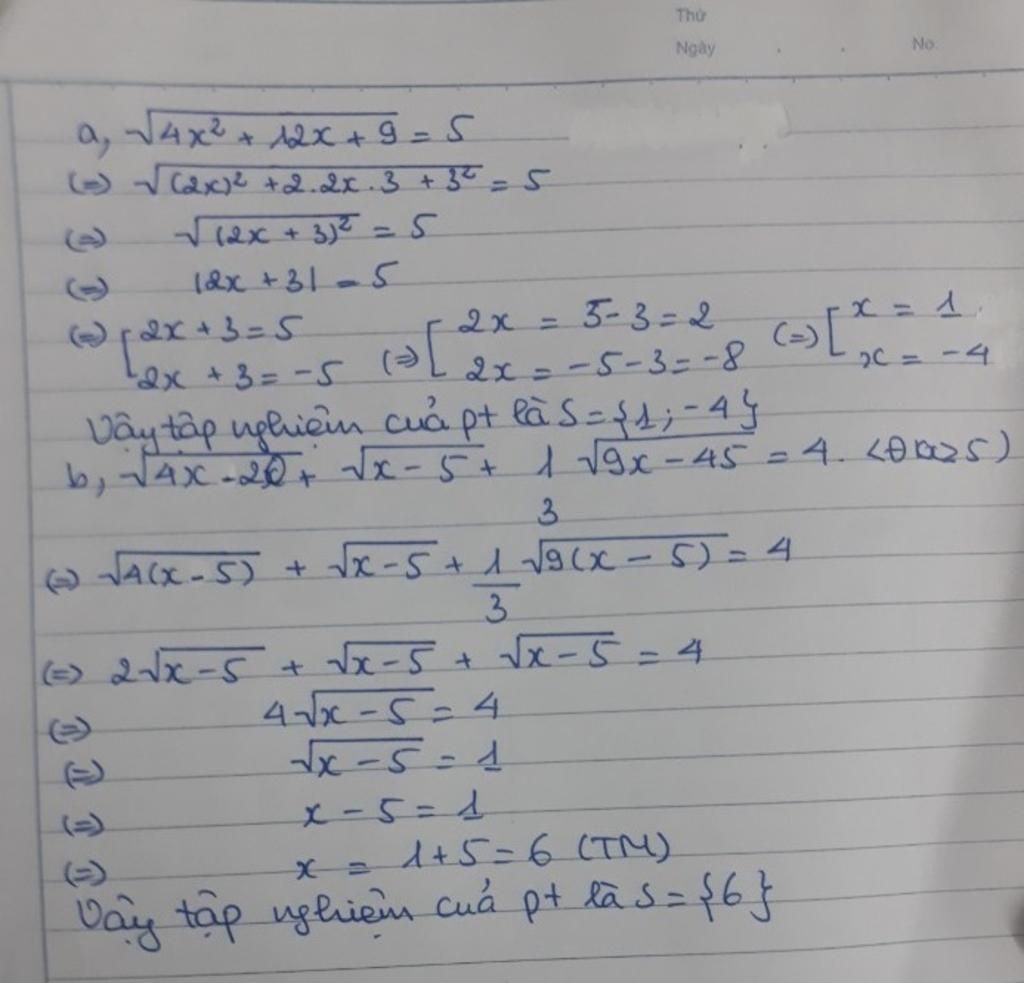 Thứ
Ngày . . No.
a, √(4x² + 12x + 9) = 5
(=) √((2x)² + 2.2x.3 + 3²) = 5
(=) √((2x + 3)²) = 5
(=) |2x + 3| = 5
(=) [2x + 3 = 5 (=) [2x = 5-3 = 2 (=) [x = 1
2x + 3 = -5 2x = -5-3 = -8 x = -4
Vậy tập nghiệm của pt là S = {1; -4}
b, √(4x - 20) + √(x - 5) + 1/3 √(9x - 45) = 4. (Đk x≥5)
(=) √(4(x - 5)) + √(x - 5) + 1/3 √(9(x - 5)) = 4
(=) 2√(x - 5) + √(x - 5) + √(x - 5) = 4
(=) 4√(x - 5) = 4
(=) √(x - 5) = 1
(=) x - 5 = 1
(=) x = 1+5 = 6 (TM)
Vậy tập nghiệm của pt là S = {6}